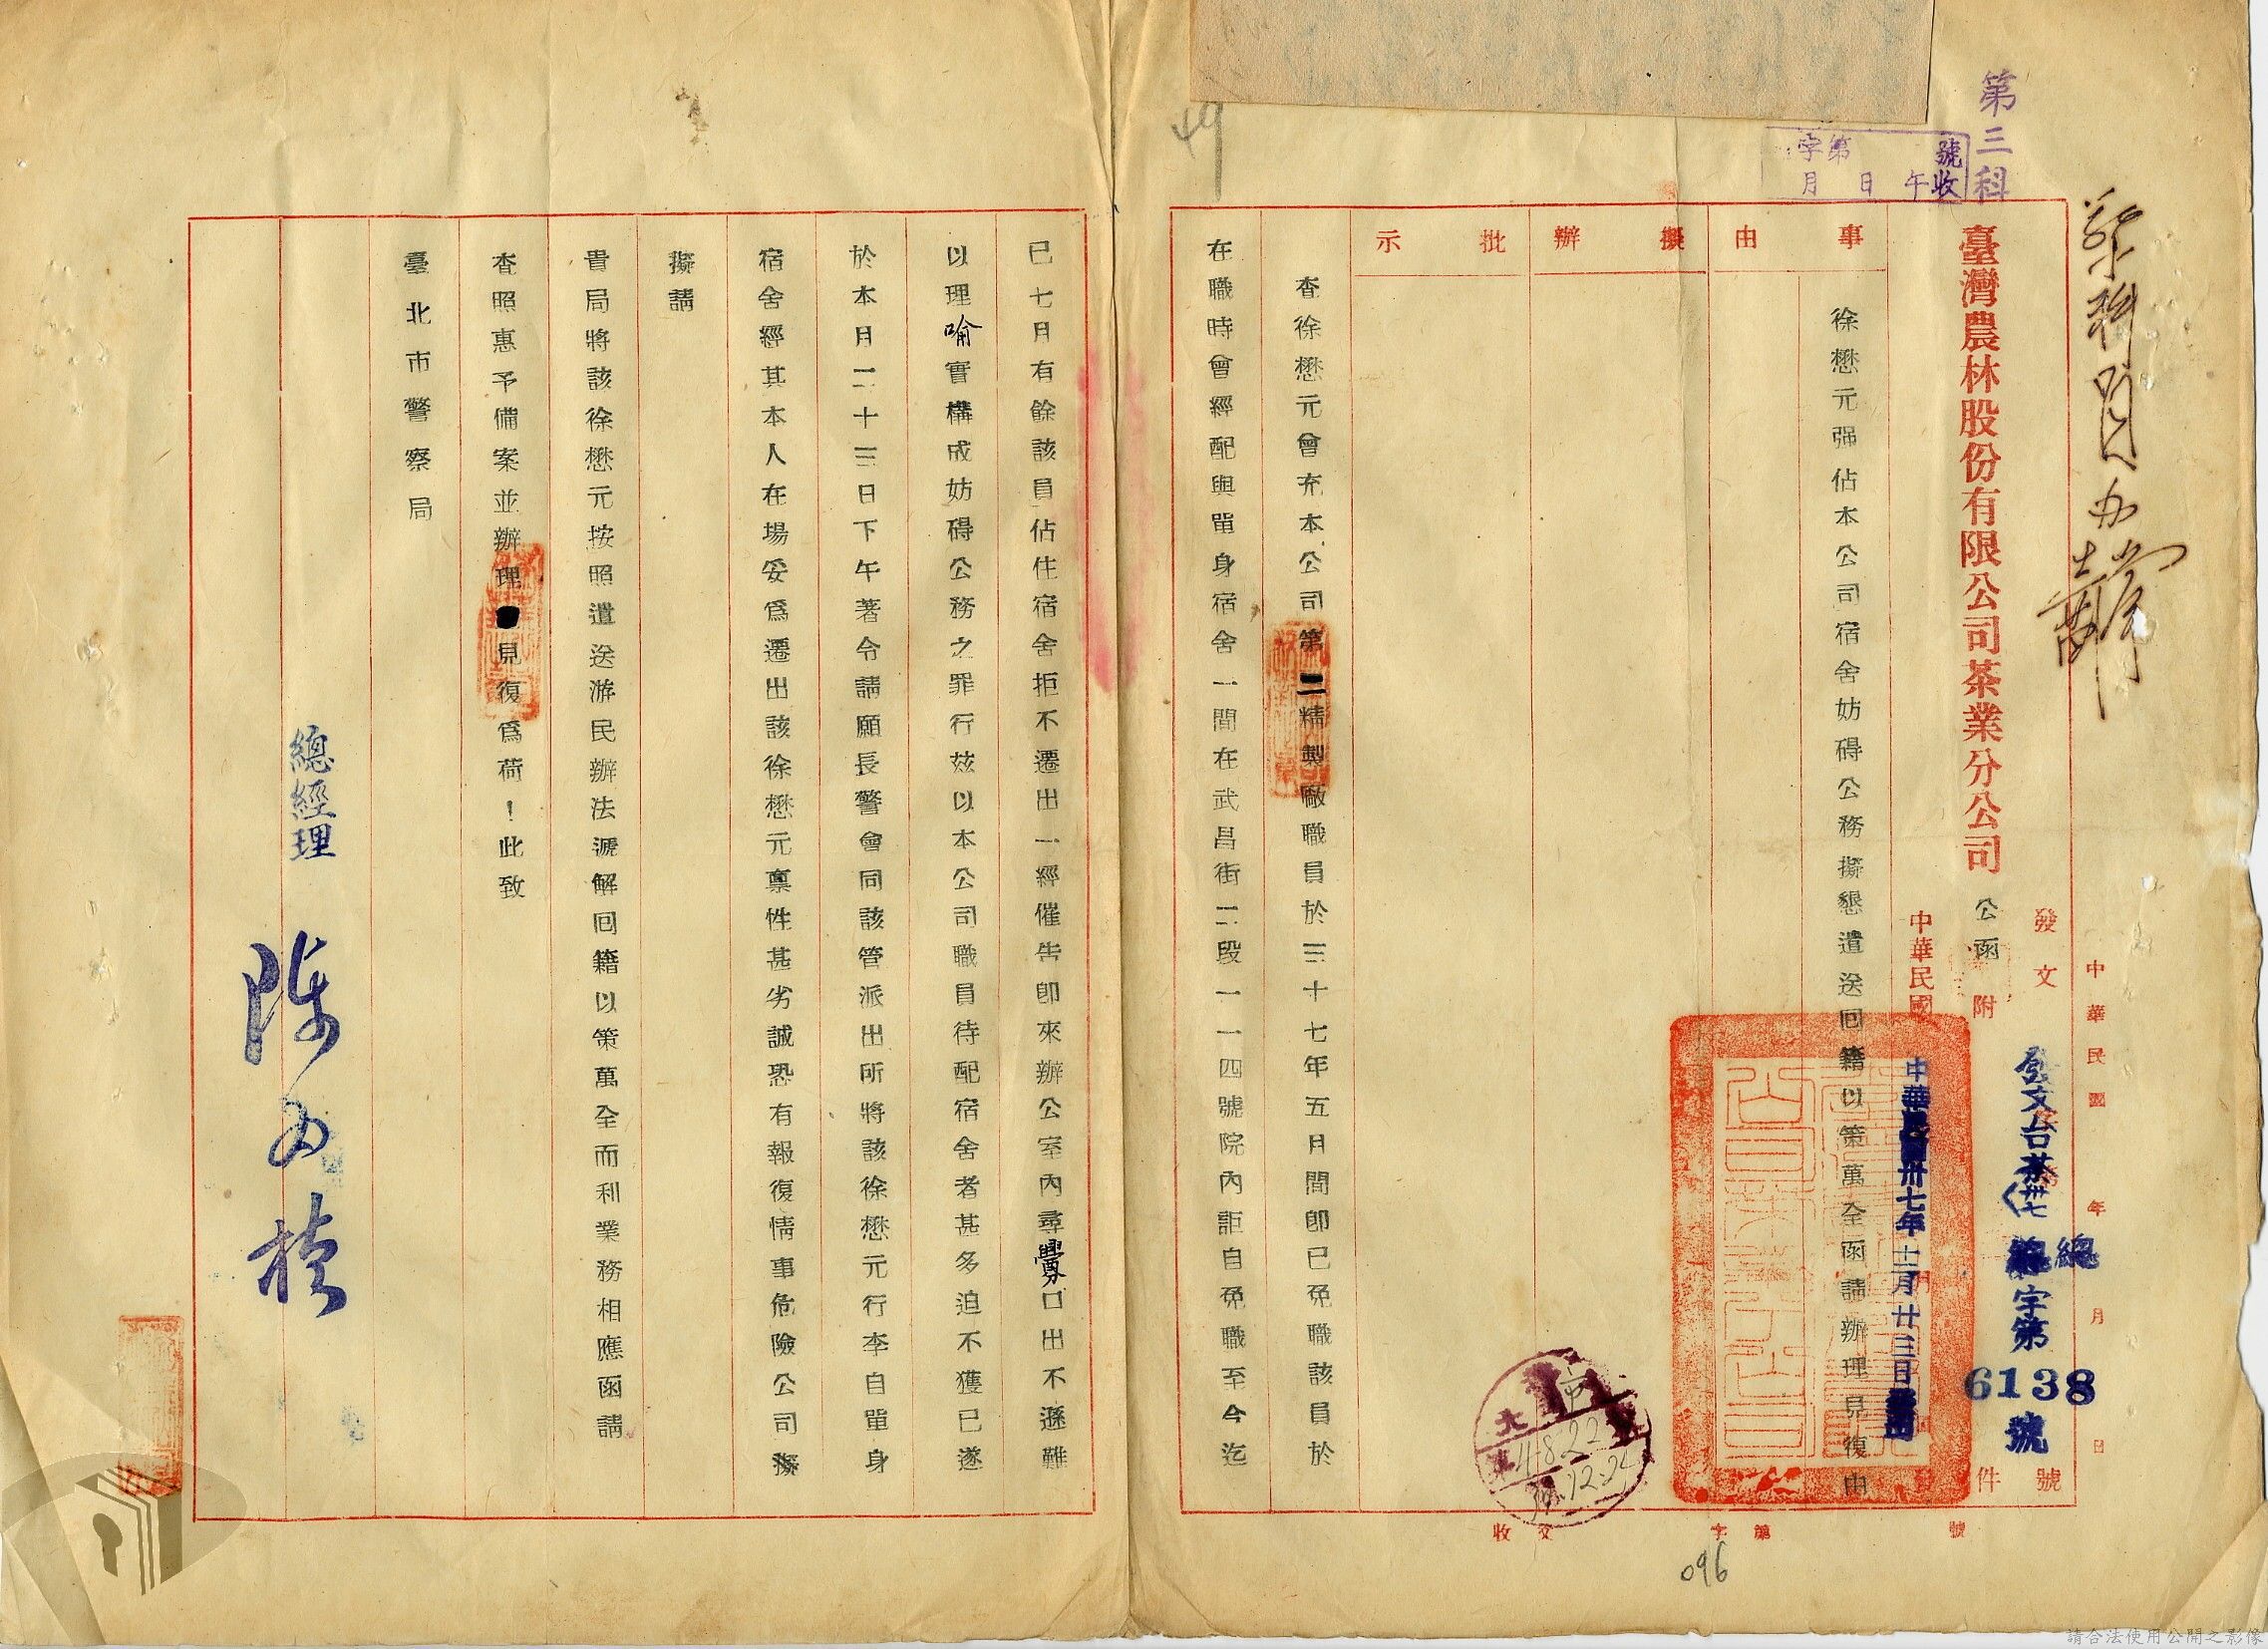 第三科
字第 號
月 日 午收
49
中華民國 年 月 日
臺灣農林股份有限公司茶業分公司 公函
發文 號
發文台茶卅七總字第6138號
附 件
中華民國
中華民國卅七年十二月廿三日
事由
徐懋元强佔本公司宿舍妨碍公務擬懇遣送回籍以策萬全函請辦理見復由
擬辦
批示
查徐懋元曾充本公司第二精製廠職員於三十七年五月間即已免職該員於
在職時曾經配與單身宿舍一間在武昌街二段一一四號院內詎自免職至今迄
收文 字第 號
096
已七月有餘該員佔住宿舍拒不遷出一經催告即來辦公室內尋釁口出不遜難
以理喻實構成妨碍公務之罪行茲以本公司職員待配宿舍者甚多迫不獲已遂
於本月二十三日下午著令請願長警會同該管派出所將該徐懋元行李自單身
宿舍經其本人在場妥為遷出該徐懋元禀性甚劣誠恐有報復情事危險公司擬
擬請
貴局將該徐懋元按照遣送游民辦法遞解回籍以策萬全而利業務相應函請
查照惠予備案並辦理見復爲荷！此致
臺北市警察局
總經理
請合法使用公開之影像